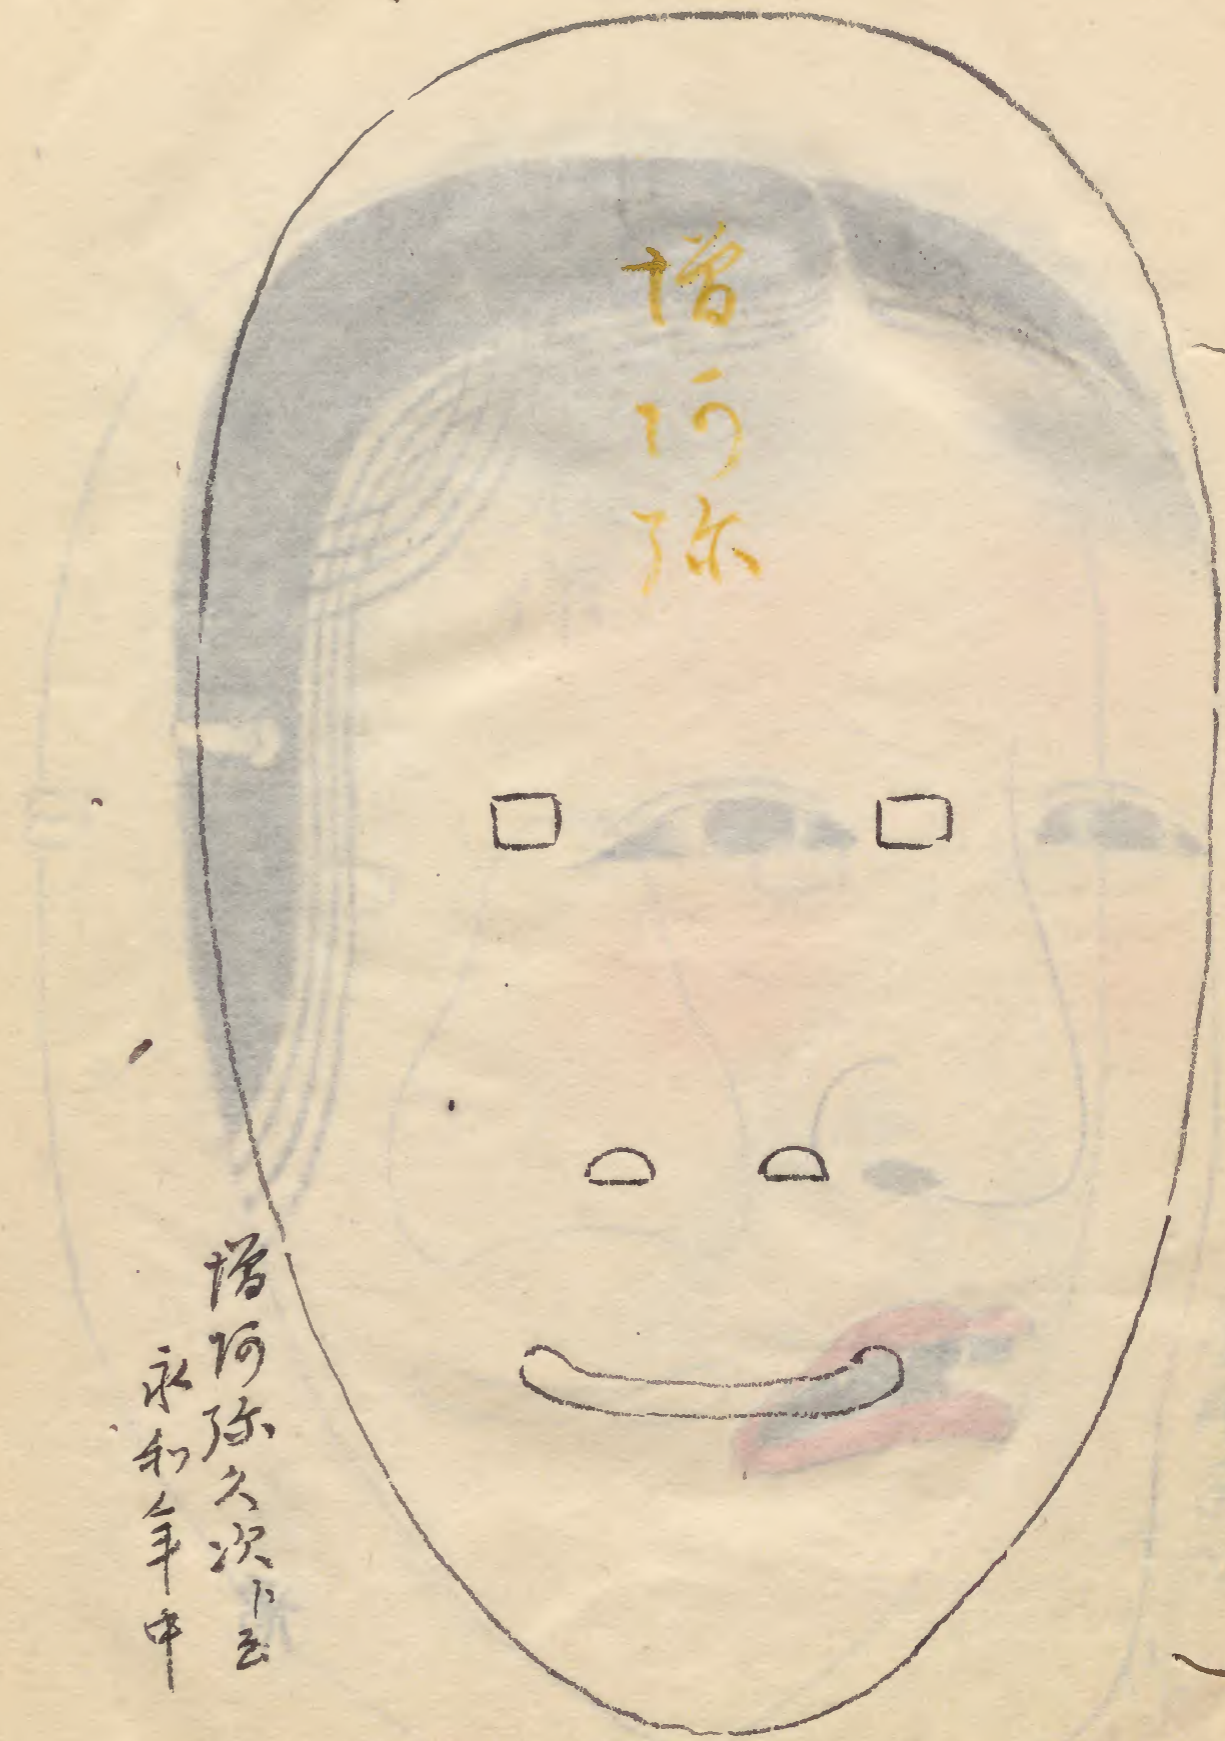 増阿弥
増阿弥久次ト云
永和年中